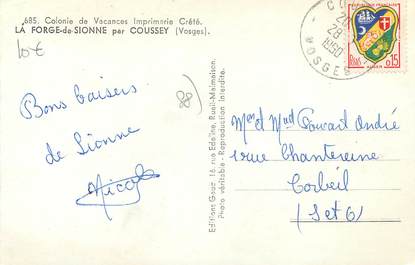 685. Colonie de Vacances Imprimerie Crété.
LA FORGE-de-SIONNE par COUSSEY (Vosges).
10€
88)
Bons baisers
de Sionne
Nicole
Editions Gouz, 16 rue Edeline, Rueil-Malmaison.
Photo véritable - Reproduction interdite.
28
1960
VOSGES
REPUBLIQUE FRANÇAISE
POSTES 0,15
ALGER
Mr et Mad Foucart André
1 rue Chantereine
Corbeil
(S et O)